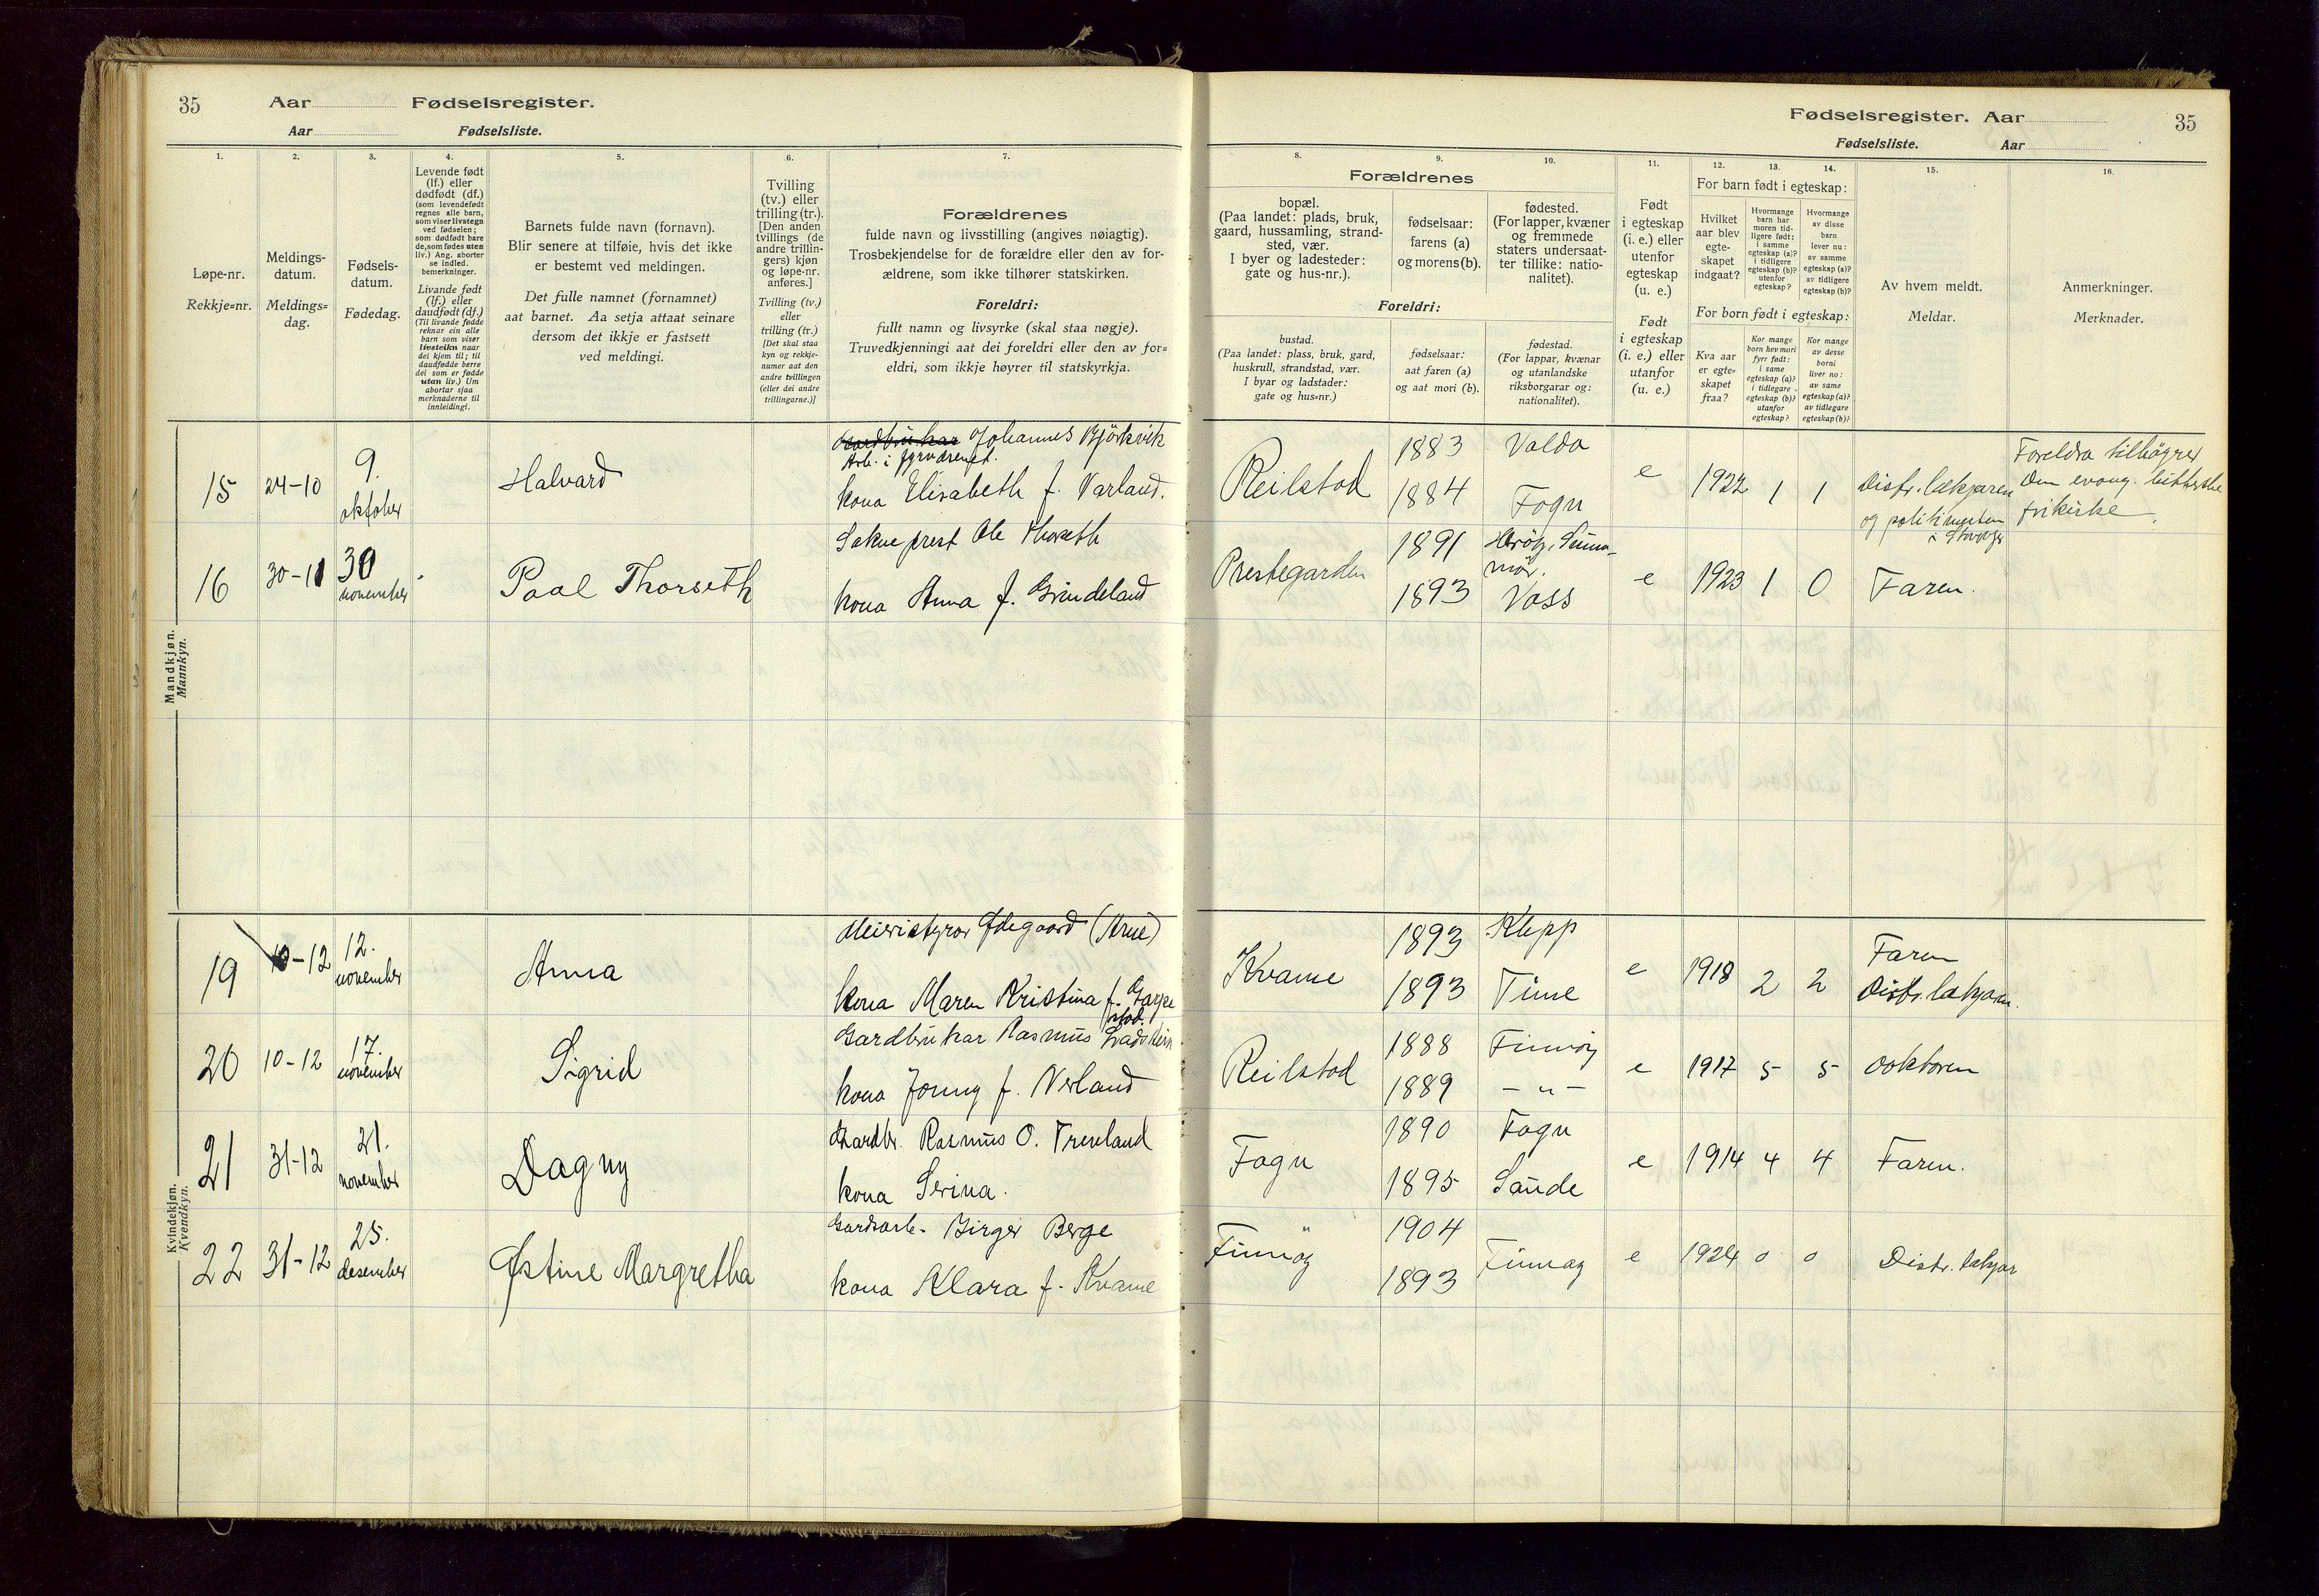 35 Aar Fødselsregister.
Aar Fødselsliste.
1.
2.
3.
4.
5.
6.
7.
Løpe-nr.
Rekkje=nr.
Meldings-
datum.
Meldings=
dag.
Fødsels-
datum.
Fødedag.
Levende født
(lf.) eller
dødfødt (df.)
(som levendefødt
regnes alle barn,
som viser livstegn
ved fødselen;
som dødfødt bare
de, som fødes uten
liv.) Ang. aborter
se indled.
bemerkninger.
Livande født
(lf.) eller
daudfødt (df.)
(Til livande fødde
reknar ein alle
barn som viser
livsteikn naar
dei kjem til; til
daudfødde berre
dei som er fødde
utan liv.) Um
abortar sjaa
merknaderne til
innleidingi.
Barnets fulde navn (fornavn).
Blir senere at tilføie, hvis det ikke
er bestemt ved meldingen.
Det fulle namnet (fornamnet)
aat barnet. Aa setja attaat seinare
dersom det ikkje er fastsett
ved meldingi.
Tvilling
(tv.) eller
trilling (tr.).
[Den anden
tvillings (de
andre trillin-
gers) kjøn
og løpe-nr.
anføres.]
Tvilling (tv.)
eller
trilling (tr.)
[Det skal staa
kyn og rekkje-
numer aat den
andre tvillingen
(eller dei andre
trillingarne.)]
Forældrenes
fulde navn og livsstilling (angives nøiagtig).
Trosbekjendelse for de forældre eller den av for-
ældrene, som ikke tilhører statskirken.
Foreldri:
fullt namn og livsyrke (skal staa nøgje).
Truvedkjenningi aat dei foreldri eller den av for=
eldri, som ikkje høyrer til statskyrkja.
Mandkjøn.
Mannkyn.
15 24-10 9. oktober Halvard
Gardbrukar Johannes Bjørkvik
Arb. i
kona Elisabeth f. Varland.
16 30-11 30 november Paal Thorseth
Sokneprest Ole Thorseth
kona Anna f. Grindeland
Kvindekjøn.
Kvendkyn.
19 10-12 12. november Anna
Meieristyrar Ødegaard (Arne)
kona Maren Kristina f. Garpe
stad.
20 10-12 17. november Sigrid
Gardbrukar Rasmus
kona Jonny f. Verland
21 31-12 21. november Dagny
Gardbr. Rasmus O. Treveland
kona Serina.
22 31-12 25. desember Østine Margretha
Gardsarb. Birger Berge
kona Klara f. Kvame
Fødselsregister. Aar 35
Fødselsliste. Aar
8.
9.
10.
11.
12.
13.
14.
15.
16.
Forældrenes
bopæl.
(Paa landet: plads, bruk,
gaard, hussamling, strand-
sted, vær.
I byer og ladesteder:
gate og hus-nr.).
fødselsaar:
farens (a)
og morens (b).
fødested.
(For lapper, kvæner
og fremmede
staters undersaat-
ter tillike: natio-
nalitet).
Foreldri:
bustad.
(Paa landet: plass, bruk, gard,
huskrull, strandstad, vær.
I byar og ladstader:
gate og hus=nr.)
fødselsaar:
aat faren (a)
og aat mori (b).
fødestad.
(For lappar, kvænar
og utanlandske
riksborgarar og:
nationalitet).
Født
i egteskap
(i. e.) eller
utenfor
egteskap
(u. e.)
Født
i egteskap
(i. e.) eller
utanfor
(u. e.)
For barn født i egteskap:
Hvilket
aar blev
egte-
skapet
indgaat?
Hvormange
barn har
moren tid-
ligere født:
i samme
egteskap (a)?
i tidligere
egteskap (b)?
utenfor
egteskap?
Hvormange
av disse
barn
lever nu:
av samme
egteskap (a)?
av tidligere
egteskap (b)?
For born født i egteskap:
Kva aar
er egte=
skapet
fraa?
Kor mange
born hev mori
fyrr født:
i same
egteskap (a)?
i tidlegare
egteskap (b)?
utanfor
egteskap?
Kor mange
av desse
borni
liver no:
av same
egteskap (a)?
av tidlegare
egteskap (b)?
Av hvem meldt.
Meldar.
Anmerkninger.
Merknader.
Reilstad 1883 Valda
1884 Fogn
e 1922 1 1 Distr. lækjaren
og politimesteren
i Stavanger
Foreldra tilhøyrer
Den evang. lutherske
frikirke.
Prestegarden 1891 Herøy, Sunn-
mør.
1893 Voss
e 1923 1 0 Faren.
Kvame 1893 Klepp
1893 Time
e 1918 2 2 Faren
Distr. lækjaren.
Reilstad 1888 Finnøy
1889 — " —
e 1917 5 5 doktoren
Fogn 1890 Fogn
1895 Sande
e 1914 4 4 Faren.
Finnøy 1904 "
1893 Finnøy
e 1924 0 0 Distr. lækjar